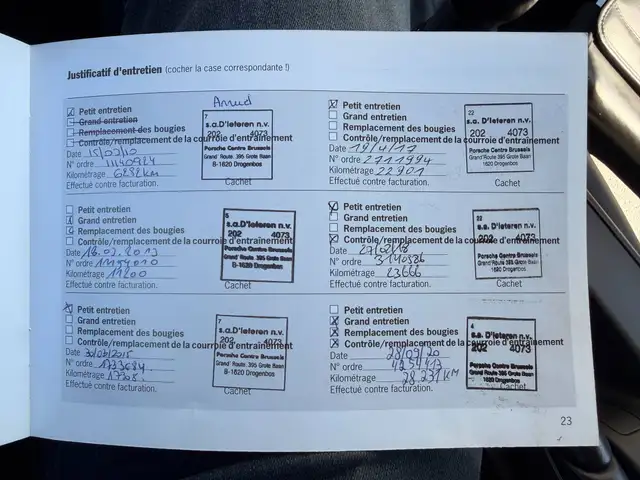 Justificatif d'entretien (cocher la case correspondante !)
Annud
Petit entretien
Grand entretien
Remplacement des bougies
Contrôle/remplacement de la courroie d'entraînement
Date 15/07/10
N° ordre 1140924
Kilométrage 6282 KM
Effectué contre facturation.
7
s.a. D'Ieteren n.v.
202 4073
Porsche Centre Brussels
Grand' Route 395 Grote Baan
B-1620 Drogenbos
Cachet
Petit entretien
Grand entretien
Remplacement des bougies
Contrôle/remplacement de la courroie d'entraînement
Date 18.03.2013
N° ordre
Kilométrage 11200
Effectué contre facturation.
s.a. D'Ieteren n.v.
202 4073
Porsche Centre Brussels
Grand' Route 395 Grote Baan
B-1620 Drogenbos
Cachet
Petit entretien
Grand entretien
Remplacement des bougies
Contrôle/remplacement de la courroie d'entraînement
Date 30/03/2015
N° ordre 1733684
Kilométrage 17305.
Effectué contre facturation.
7
s.a. D'Ieteren n.v.
202 4073
Porsche Centre Brussels
Grand' Route 395 Grote Baan
B-1620 Drogenbos
Cachet
Petit entretien
Grand entretien
Remplacement des bougies
Contrôle/remplacement de la courroie d'entraînement
Date 19/4/17
N° ordre 2711994
Kilométrage 22901
Effectué contre facturation.
22
s.a. D'Ieteren n.v.
202 4073
Porsche Centre Brussels
Grand' Route 395 Grote Baan
1620 Drogenbos
Cachet
Petit entretien
Grand entretien
Remplacement des bougies
Contrôle/remplacement de la courroie d'entraînement
Date 27/02/18
N° ordre 3140386
Kilométrage 23666
Effectué contre facturation.
22
s.a. D'Ieteren n.v.
202 4073
Porsche Centre Brussels
Grand' Route 395 Grote Baan
1620 Drogenbos
Cachet
Petit entretien
Grand entretien
Remplacement des bougies
Contrôle/remplacement de la courroie d'entraînement
Date 28/09/20
N° ordre 4254413
Kilométrage 28.231 KM
Effectué contre facturation.
4
s.a. D'Ieteren n.v.
202 4073
Porsche Centre Brussels
Grand' Route 395 Grote Baan
1620 Drogenbos
Cachet
23